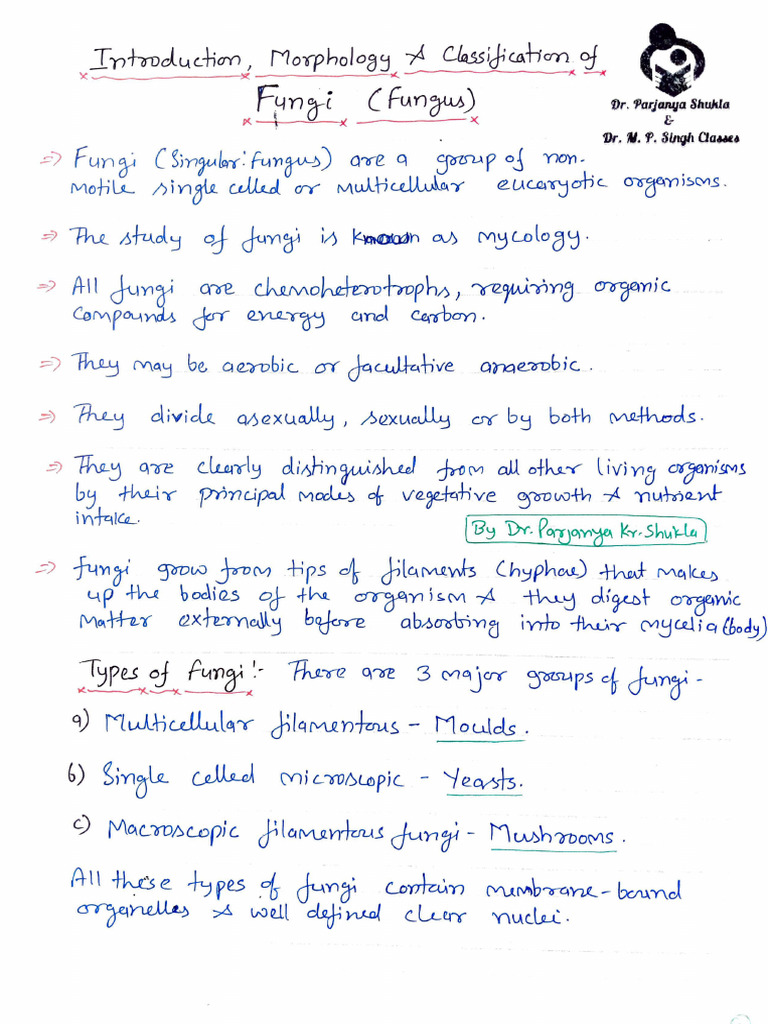 Introduction, Morphology & Classification of
Fungi (Fungus)
Dr. Parjanya Shukla
&
Dr. M. P. Singh Classes
⇒ Fungi (Singular: fungus) are a group of non-
motile single celled or multicellular eucaryotic organisms.
⇒ The study of fungi is known as mycology.
⇒ All fungi are chemoheterotrophs, requiring organic
compounds for energy and carbon.
⇒ They may be aerobic or facultative anaerobic.
⇒ They divide asexually, sexually or by both methods.
⇒ They are clearly distinguished from all other living organisms
by their principal modes of vegetative growth & nutrient
intake.
By Dr. Parjanya Kr. Shukla
⇒ fungi grow from tips of filaments (hyphae) that makes
up the bodies of the organism & they digest organic
matter externally before absorbing into their mycelia (body)
Types of fungi:- There are 3 major groups of fungi -
a) Multicellular filamentous - Moulds.
b) Single celled microscopic - Yeasts.
c) Macroscopic filamentous fungi - Mushrooms.
All these types of fungi contain membrane-bound
organelles & well defined clear nuclei.